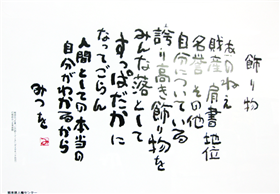 飾り物
あのねえ
財産 肩書 地位
名誉 その他
自分についている
誇り高き飾り物を
みんな落として
すっぱだかに
なってごらん
人間としての本当の
自分がわかるから
みつを